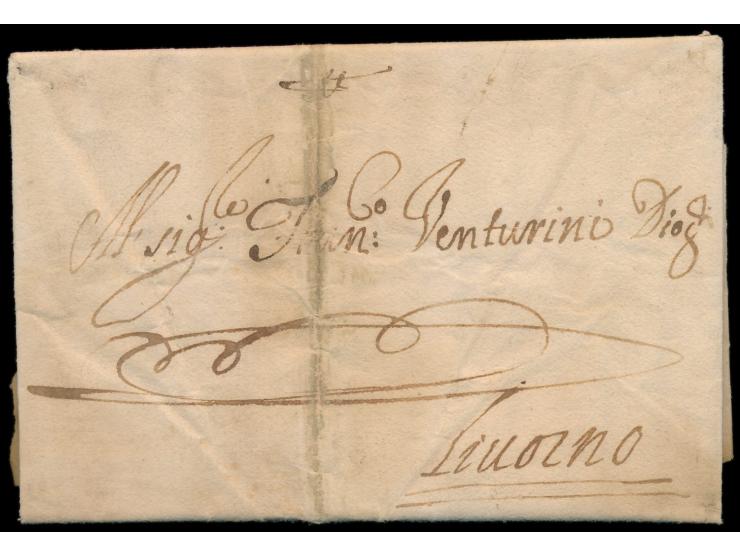 Al sig:re Fran:co Venturini Dio g.di
Livorno